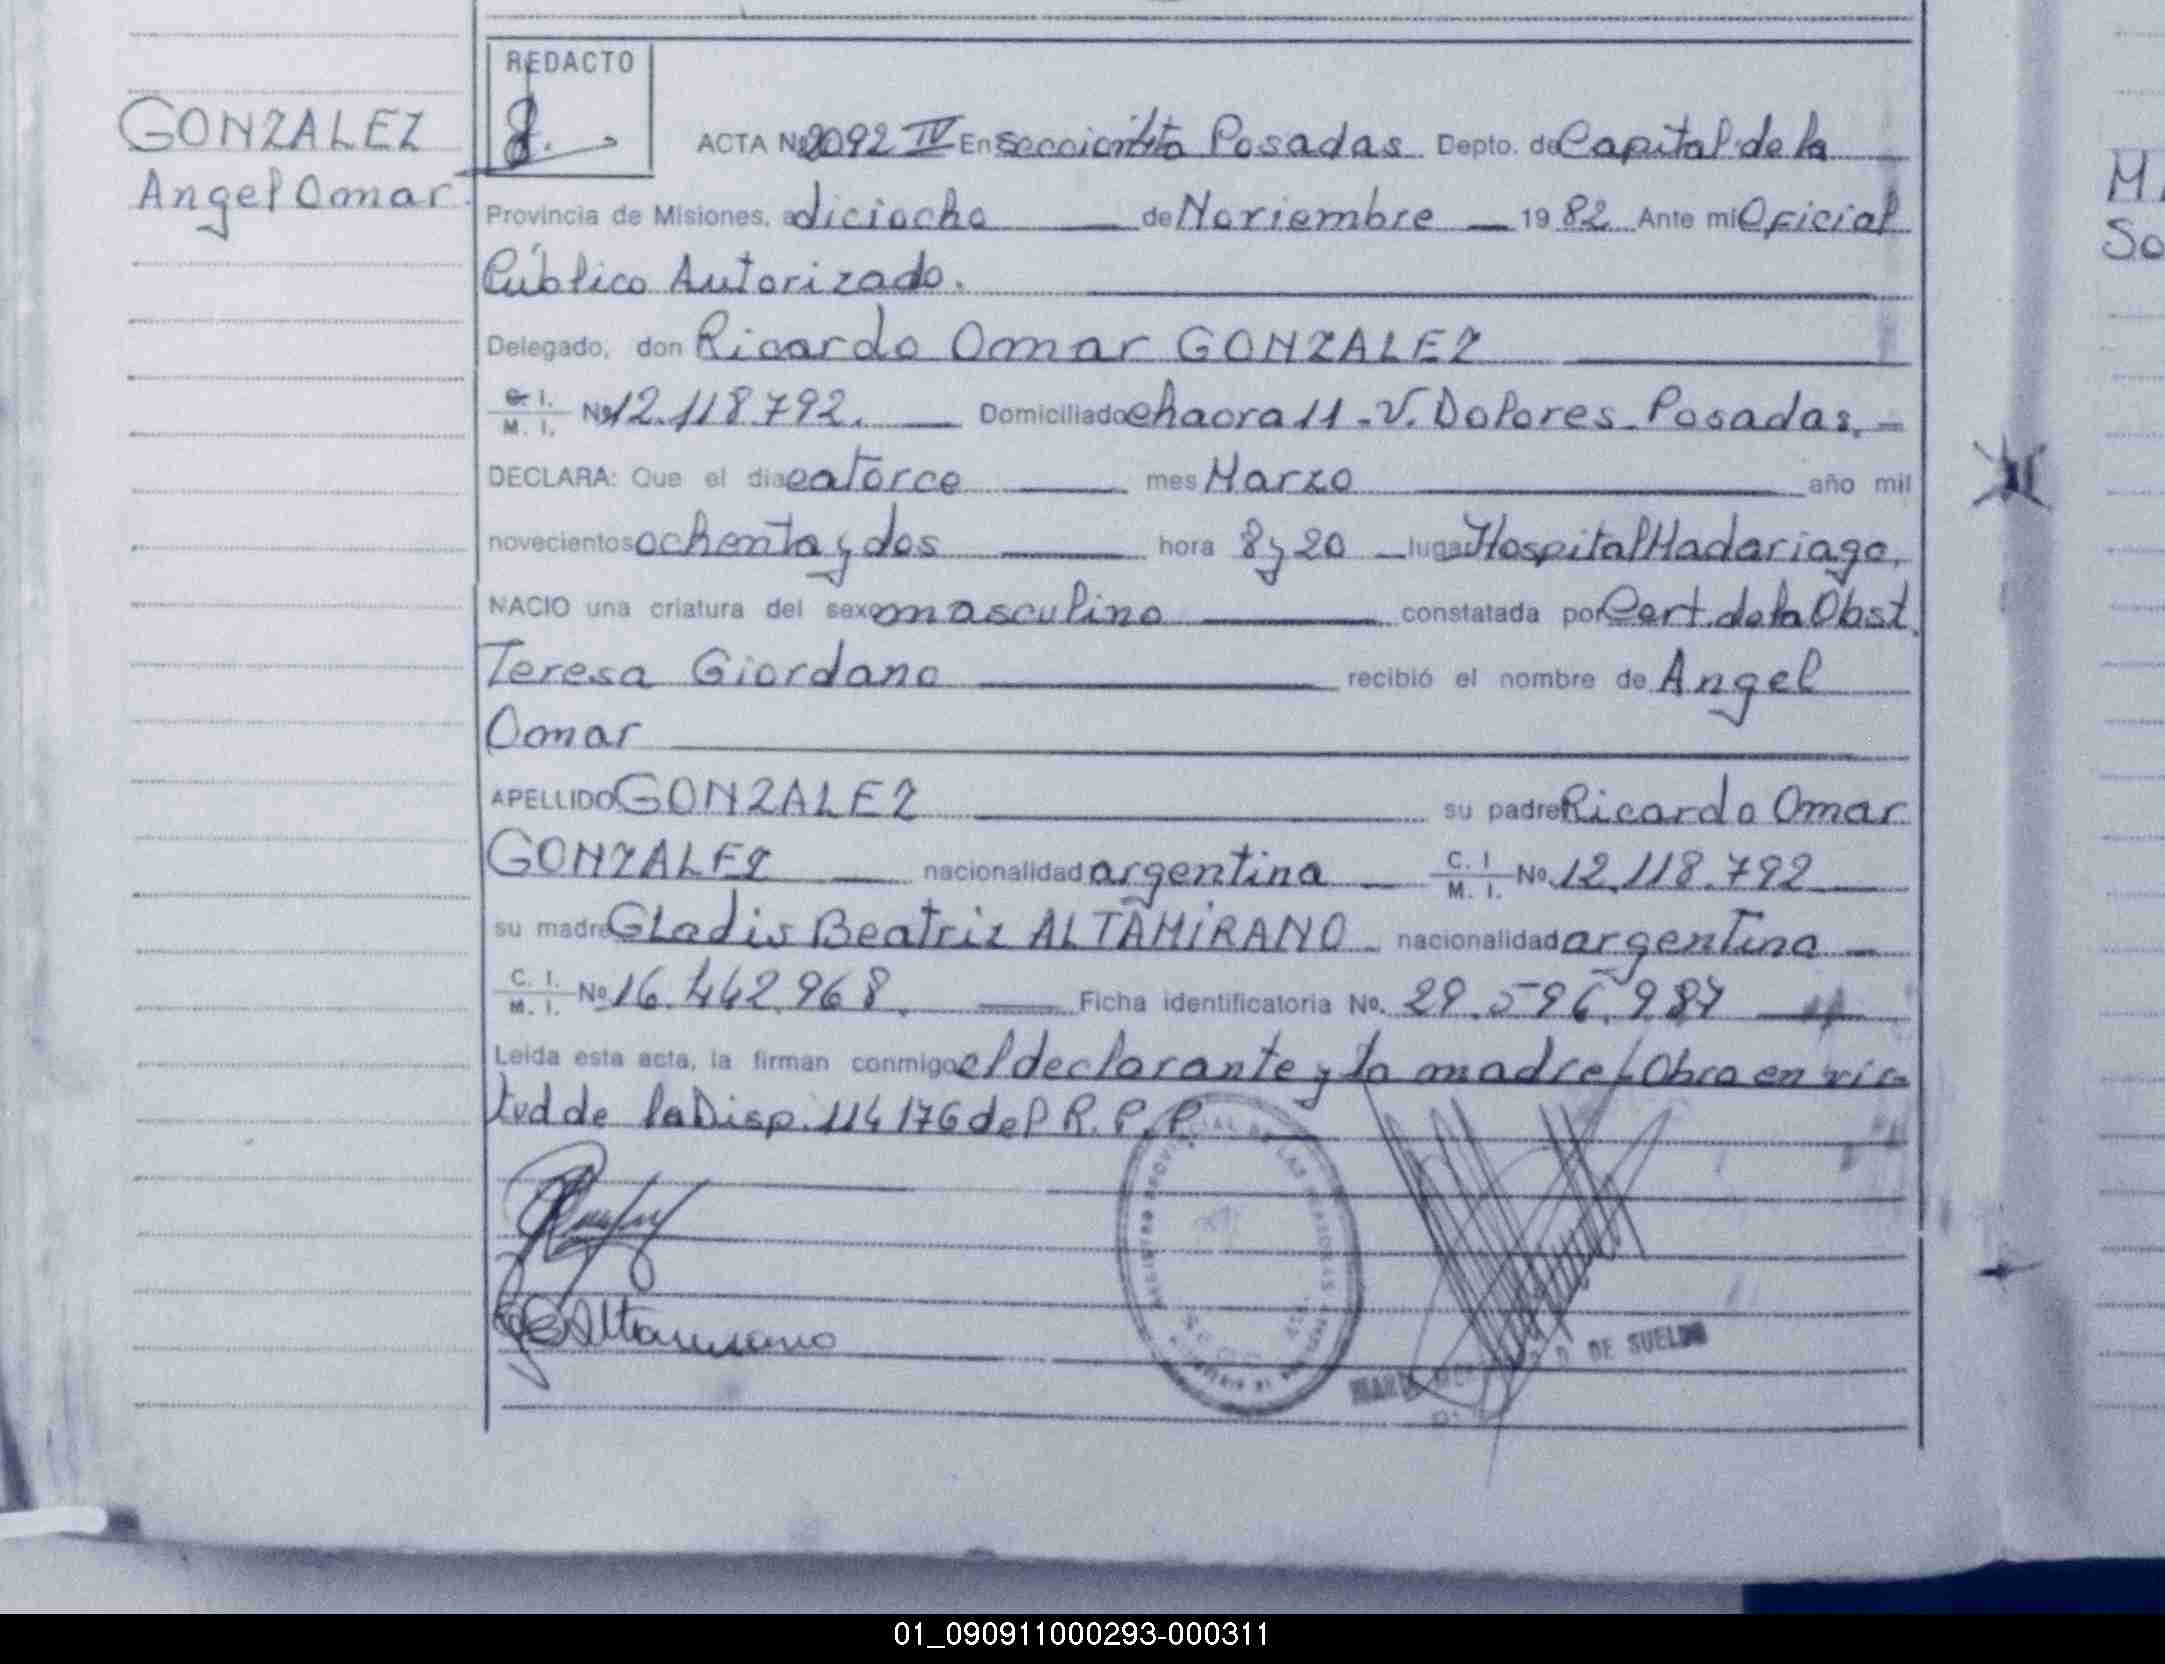 REDACTO
GONZALEZ
Angel Omar
ACTA Nº 2092 IV En sección 4ta Posadas Depto. de Capital de la
Provincia de Misiones, a diciocho de Noviembre 1982 Ante mi Oficial
Público Autorizado.
Delegado, don Ricardo Omar GONZALEZ
C. I. M. I. Nº 12.118.792. Domiciliado chacra 11 - V. Dolores - Posadas. -
DECLARA: Que el dia catorce mes Marzo año mil
novecientos ochenta y dos hora 8 y 20 lugar Hospital Madariaga,
NACIO una criatura del sexo masculino constatada por Cert. de la Obst.
Teresa Giordano recibió el nombre de Angel
Omar
APELLIDO GONZALEZ su padre Ricardo Omar
GONZALEZ nacionalidad argentina C. I. M. I. Nº 12.118.792
su madre Gladis Beatriz ALTAMIRANO nacionalidad argentina
C. I. M. I. Nº 16.442.968. Ficha identificatoria Nº. 29.596.987
Leida esta acta, la firman conmigo el declarante y la madre/. Obra en vir
tud de la Disp. 114/76 del R.P.P.
Altamirano
DE SUELDO
M.
So
01_090911000293-000311